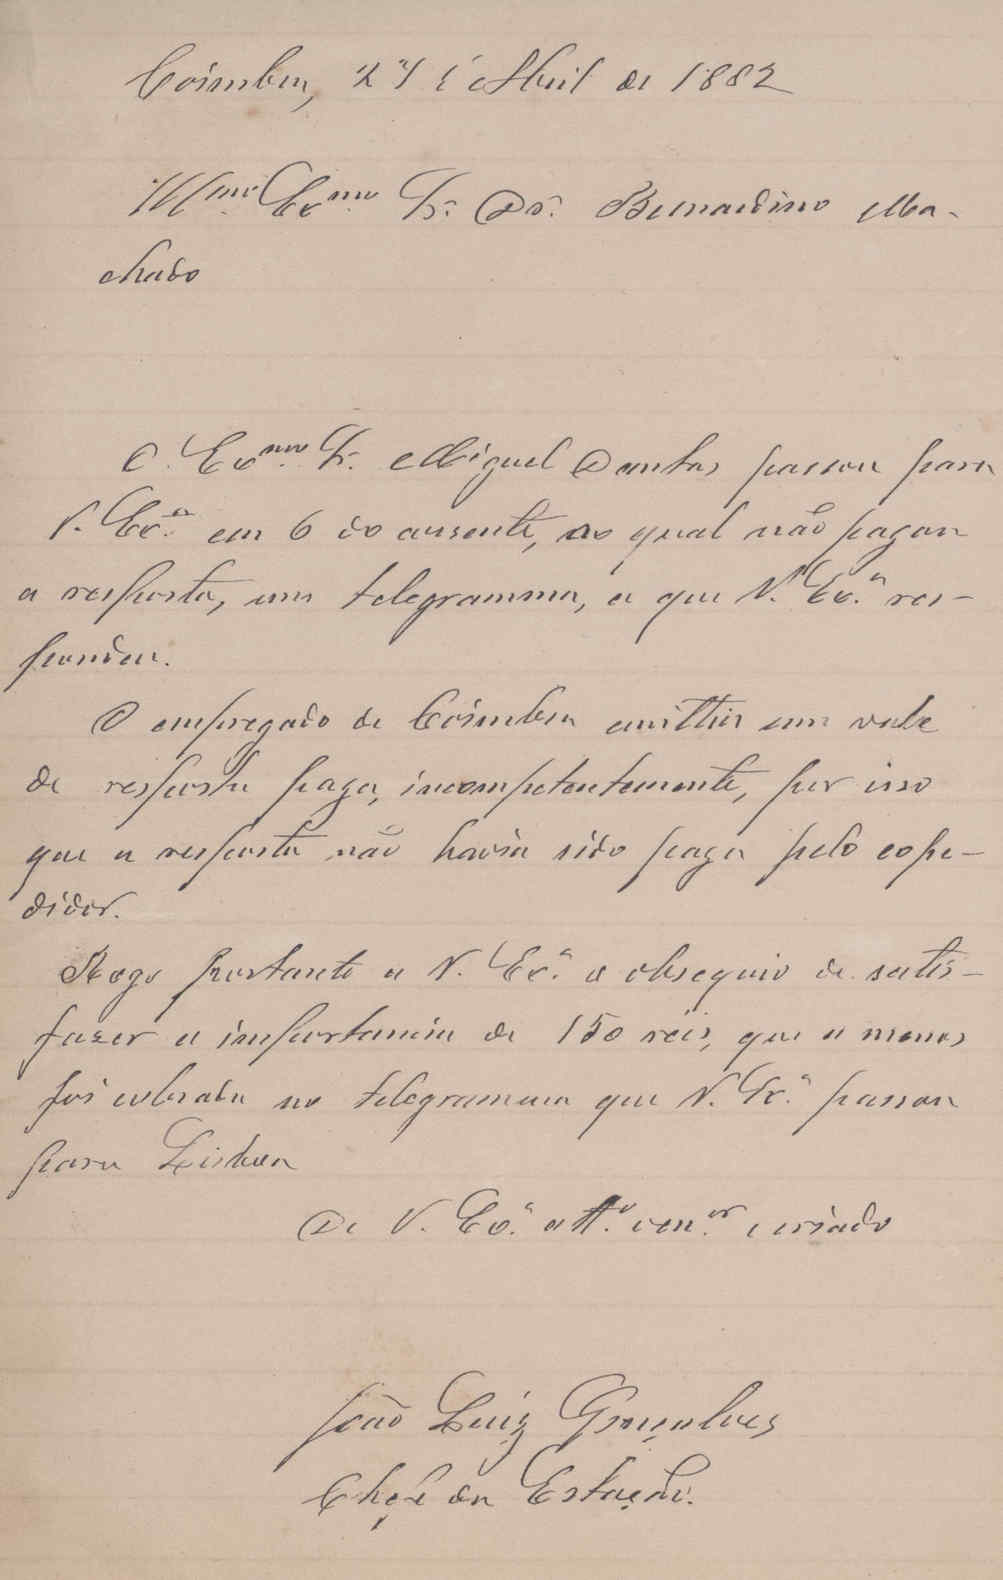 Coimbra, 27 d'Abril de 1882
Illmo. Exmo. Sr. Dr. Bernardino Ma-
chado
O Exmo. Sr. Miguel Dantas passou para
V. Exª. em 6 do corrente, ao qual não pagou
a resposta, um telegramma, a que V. Exª. res-
pondeu.
O empregado de Coimbra emittiu um vale
de resposta paga, incompetentemente, por isso
que a resposta não havia sido paga pelo expe-
didor.
Rogo portanto a V. Exª. o obsequio de satis-
fazer a importancia de 150 reis, que a menos
foi cobrada no telegramma que V. Exª. passou
para Lisboa
De V. Exª. attº. venor. e criado
João Luiz Gonçalves
Chefe da Estação.